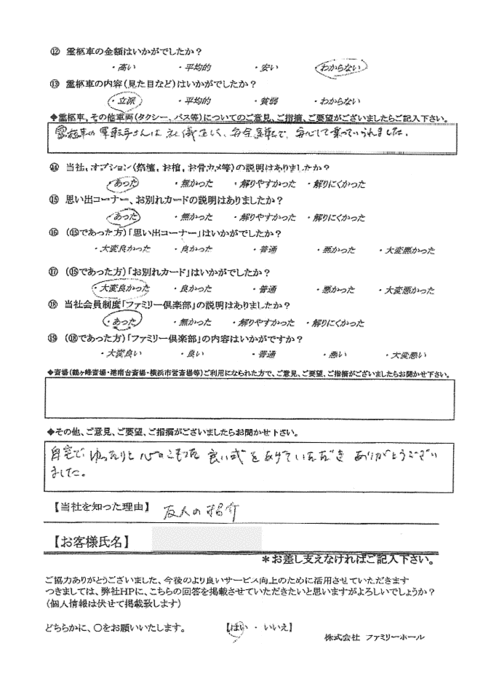 ⑫ 霊柩車の金額はいかがでしたか？
・高い ・平均的 ・安い ・わからない
⑬ 霊柩車の内容（見た目など）はいかがでしたか？
・立派 ・平均的 ・貧弱 ・わからない
◆霊柩車、その他車両（タクシー、バス等）についてのご意見、ご指摘、ご要望がございましたらご記入下さい。
霊柩車の運転手さんは礼儀正しく、安全運転で、安心して乗っていられました。
⑭ 当社、オプション（祭壇、お棺、お骨カメ等）の説明はありましたか？
・あった ・無かった ・解りやすかった ・解りにくかった
⑮ 思い出コーナー、お別れカードの説明はありましたか？
・あった ・無かった ・解りやすかった ・解りにくかった
⑯ （⑮であった方）「思い出コーナー」はいかがでしたか？
・大変良かった ・良かった ・普通 ・悪かった ・大変悪かった
⑰ （⑮であった方）「お別れカード」はいかがでしたか？
・大変良かった ・良かった ・普通 ・悪かった ・大変悪かった
⑱ 当社会員制度「ファミリー倶楽部」の説明はありましたか？
・あった ・無かった ・解りやすかった ・解りにくかった
⑲ （⑱であった方）「ファミリー倶楽部」の内容はいかがですか？
・大変良い ・良い ・普通 ・悪い ・大変悪い
◆斎場（鶴ヶ峰斎場・港南台斎場・横浜市営斎場等）ご利用になられた方で、ご意見、ご要望、ご指摘がございましたらお聞かせ下さい。
◆その他、ご意見、ご要望、ご指摘がございましたらお聞かせ下さい。
自宅で、ゆったりと心のこもった良い式をあげていただきありがとうござい
ました。
【当社を知った理由】 友人の紹介
【お客様氏名】
＊お差し支えなければご記入下さい。
ご協力ありがとうございました、今後のより良いサービス向上のために活用させていただきます
つきましては、弊社HPに、こちらの回答を掲載させていただきたいと思いますがよろしいでしょうか？
（個人情報は伏せて掲載致します）
どちらかに、〇をお願いいたします。 【はい ・ いいえ】
株式会社 ファミリーホール